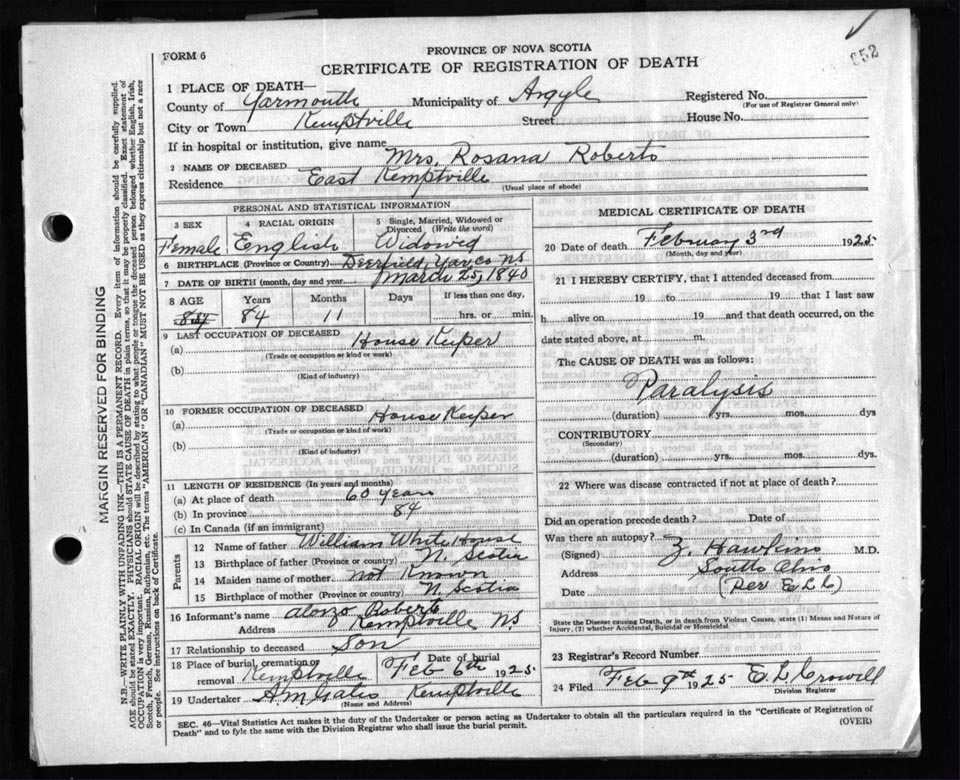 052
FORM 6
PROVINCE OF NOVA SCOTIA
CERTIFICATE OF REGISTRATION OF DEATH
1 PLACE OF DEATH—
County of Yarmouth Municipality of Argyle Registered No.
(For use of Registrar General only)
City or Town Kemptville Street House No.
If in hospital or institution, give name
2 NAME OF DECEASED Mrs. Rosana Roberts
Residence East Kemptville
(Usual place of abode)
PERSONAL AND STATISTICAL INFORMATION
3 SEX 4 RACIAL ORIGIN 5 Single, Married, Widowed or Divorced (Write the word)
Female English Widowed
6 BIRTHPLACE (Province or Country) Deerfield, Yar. Co NS
7 DATE OF BIRTH (month, day and year) March 25, 1840
8 AGE Years Months Days If less than one day,
84 11 hrs. or min.
9 LAST OCCUPATION OF DECEASED
(a) House Keeper
(Trade or occupation or kind or work)
(b)
(Kind of industry)
10 FORMER OCCUPATION OF DECEASED
(a) House Keeper
(Trade or occupation or kind of work)
(b)
(Kind of industry)
11 LENGTH OF RESIDENCE (In years and months)
(a) At place of death 60 years
(b) In province 84
(c) In Canada (if an immigrant)
Parents
12 Name of father William White House
13 Birthplace of father (Province or country) N. Scotia
14 Maiden name of mother not Known
15 Birthplace of mother (Province or country) N. Scotia
16 Informant's name Alonzo Roberts
Address Kemptville N.S.
17 Relationship to deceased Son
18 Place of burial, cremation or removal Kemptville Date of burial Feb 6th 1925
19 Undertaker A.M. Gates Kemptville
(Name and Address)
MEDICAL CERTIFICATE OF DEATH
20 Date of death February 3rd 1925
(Month, day and year)
21 I HEREBY CERTIFY, that I attended deceased from
19 to 19 that I last saw
h alive on 19 and that death occurred, on the
date stated above, at m.
The CAUSE OF DEATH was as follows:
Paralysis
(duration) yrs. mos. dys
CONTRIBUTORY
(Secondary)
(duration) yrs. mos. dys.
22 Where was disease contracted if not at place of death?
Did an operation precede death? Date of
Was there an autopsy?
(Signed) Z. Hawkins M.D.
Address South Ohio
Date (Per E.L.C)
State the Disease causing Death, or in death from Violent Causes, state (1) Means and Nature of
Injury, (2) whether Accidental, Suicidal or Homicidal.
23 Registrar's Record Number
24 Filed Feb 9th 1925 E.L. Crowell
Division Registrar
SEC. 46—Vital Statistics Act makes it the duty of the Undertaker or person acting as Undertaker to obtain all the particulars required in the "Certificate of Registration of
Death" and to fyle the same with the Division Registrar who shall issue the burial permit.
(OVER)
MARGIN RESERVED FOR BINDING
N.B.—WRITE PLAINLY WITH UNFADING INK—THIS IS A PERMANENT RECORD. Every item of information should be carefully supplied.
AGE should be stated EXACTLY. PHYSICIANS should STATE CAUSE OF DEATH in plain terms, so that it may be properly classified. Exact statement of
OCCUPATION is very important. RACIAL ORIGIN will be described by stating to what people or tongue the deceased person belonged whether English, Irish,
Scotch, French, German, Russian, Ruthenian, etc. The terms "AMERICAN" OR "CANADIAN" MUST NOT BE USED as they express citizenship but not a race
or people. See instructions on back of Certificate.